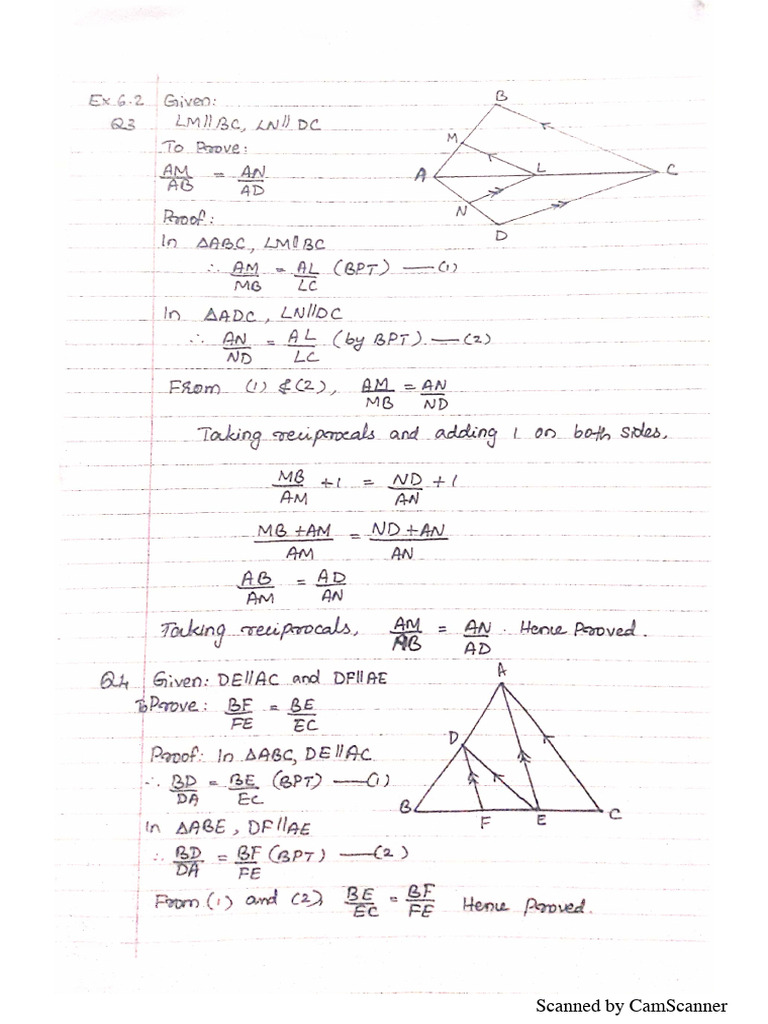 Ex 6.2 Given:
Q3 LM||BC, LN||DC
To Prove:
AM/AB = AN/AD
Proof:
In △ABC, LM||BC
∴ AM/MB = AL/LC (BPT) —(1)
In △ADC, LN||DC
∴ AN/ND = AL/LC (by BPT). —(2)
From (1) & (2), AM/MB = AN/ND
Taking reciprocals and adding 1 on both sides,
MB/AM + 1 = ND/AN + 1
MB + AM/AM = ND + AN/AN
AB/AM = AD/AN
Taking reciprocals, AM/AB = AN/AD . Hence Proved.
B
M
A
L
C
N
D
Q4 Given: DE||AC and DF||AE
To Prove: BF/FE = BE/EC
Proof: In △ABC, DE||AC
∴ BD/DA = BE/EC (BPT) —(1)
In △ABE, DF||AE
∴ BD/DA = BF/FE (BPT) —(2)
From (1) and (2), BE/EC = BF/FE Hence Proved.
A
D
B
F
E
C
Scanned by CamScanner